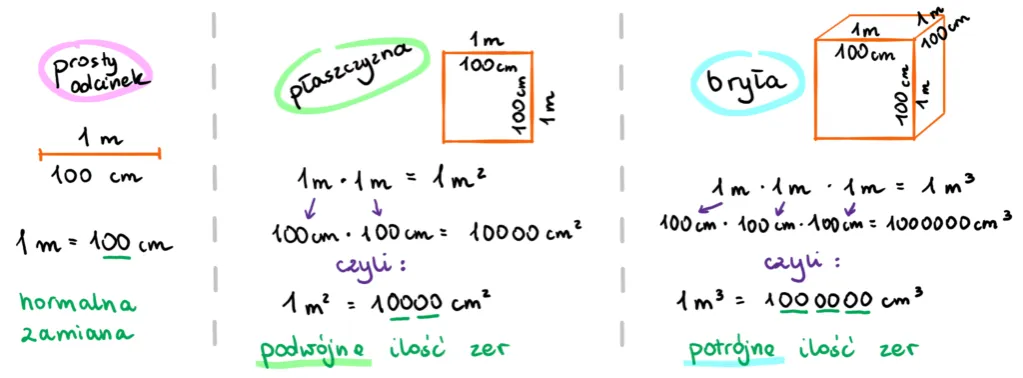 prosty
odcinek
1 m
100 cm
1 m = 100 cm
normalna
zamiana
płaszczyzna
1m
100cm
100cm
1m
1m · 1m = 1m²
100cm · 100cm = 10000 cm²
czyli :
1 m² = 10000 cm²
podwójna ilość zer
bryła
1m
100cm
1m
100cm
100cm
1m
1m · 1m · 1m = 1 m³
100cm · 100cm · 100cm = 1000000cm³
czyli :
1m³ = 1000000 cm³
potrójna ilość zer